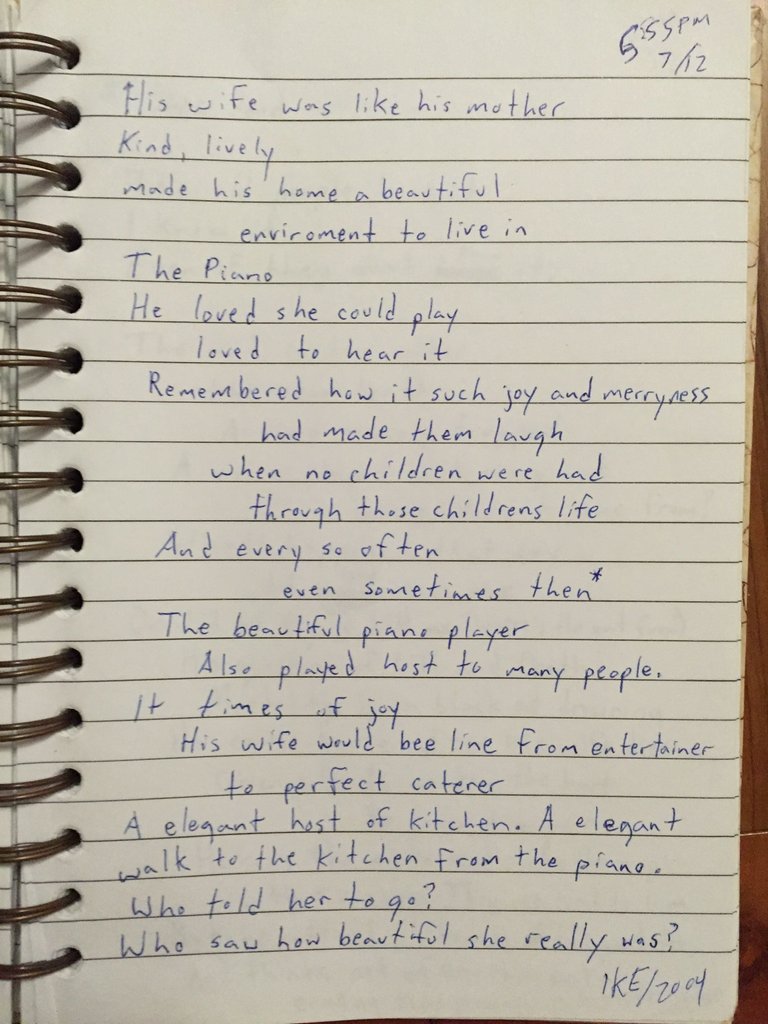 5:55PM
7/12
His wife was like his mother
Kind, lively
made his home a beautiful
enviroment to live in
The Piano
He loved she could play
loved to hear it
Remembered how it such joy and merryness
had made them laugh
when no children were had
through those childrens life
And every so often
even sometimes then*
The beautiful piano player
Also played host to many people.
It times of joy
His wife would bee line from entertainer
to perfect caterer
A elegant host of kitchen. A elegant
walk to the kitchen from the piano.
Who told her to go?
Who saw how beautiful she really was?
IKE/2004